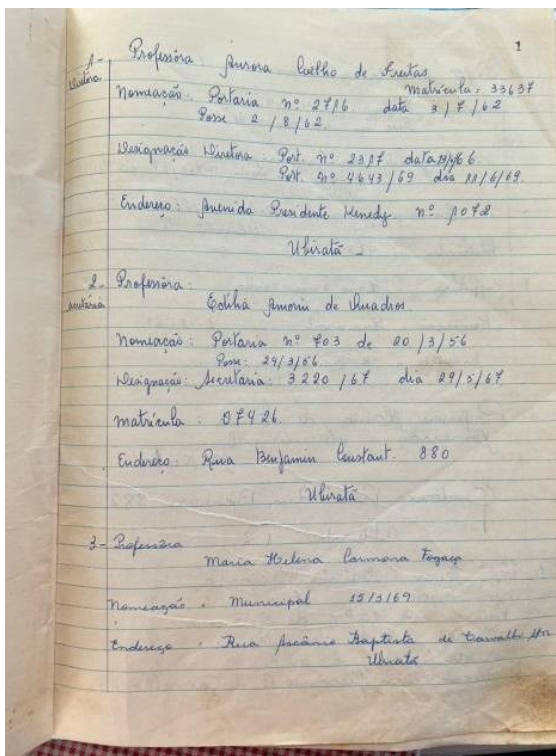 1
1- Professora: Aurora Coelho de Freitas
Diretora
matrícula: 33637
Nomeação: Portaria nº 2716 data 3/7/62
Posse 2/8/62
Designação Diretora: Port. nº 2317 data
Port. nº 4643/69 dia 11/6/69
Endereço: Avenida Presidente Kenedy nº 1072
Ubiratã -
2- Professora:
Secretária
Edilha Amorim de Quadros
Nomeação: Portaria nº 703 de 20/3/56
Posse: 24/3/56
Designação: Secretaria: 3220/67 dia 29/5/67
matrícula: 07426
Endereço: Rua Benjamin Constant. 880
Ubiratã
3- Professora
Maria Helena Carmona Fogaça
Nomeação: Municipal 15/3/69
Endereço: Rua Ascânio Baptista de Carvalho
Ubiratã